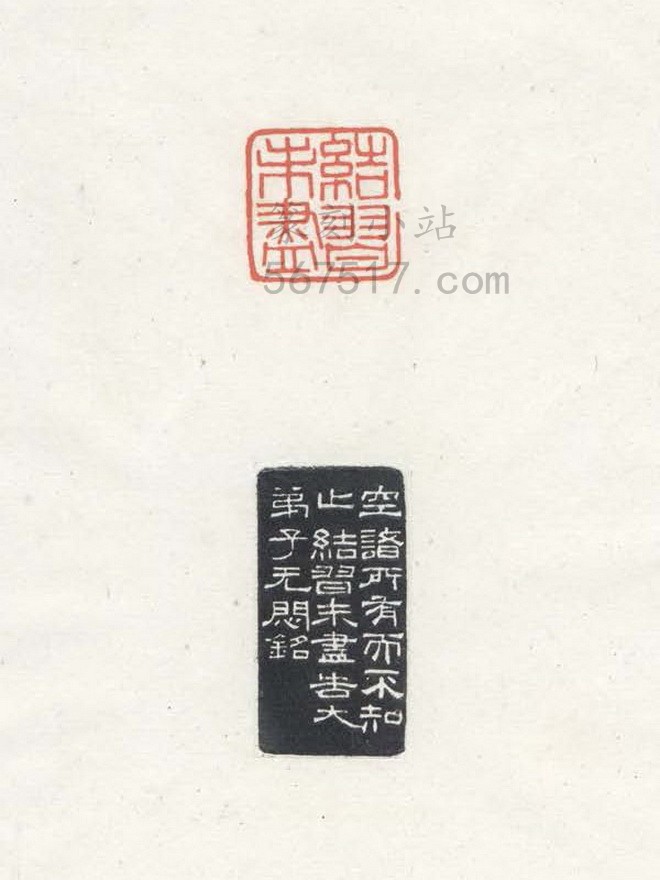 結習
未盡
篆刻小站
567517.com
空諸所有而不知
止結習未盡告大
弟子无悶銘